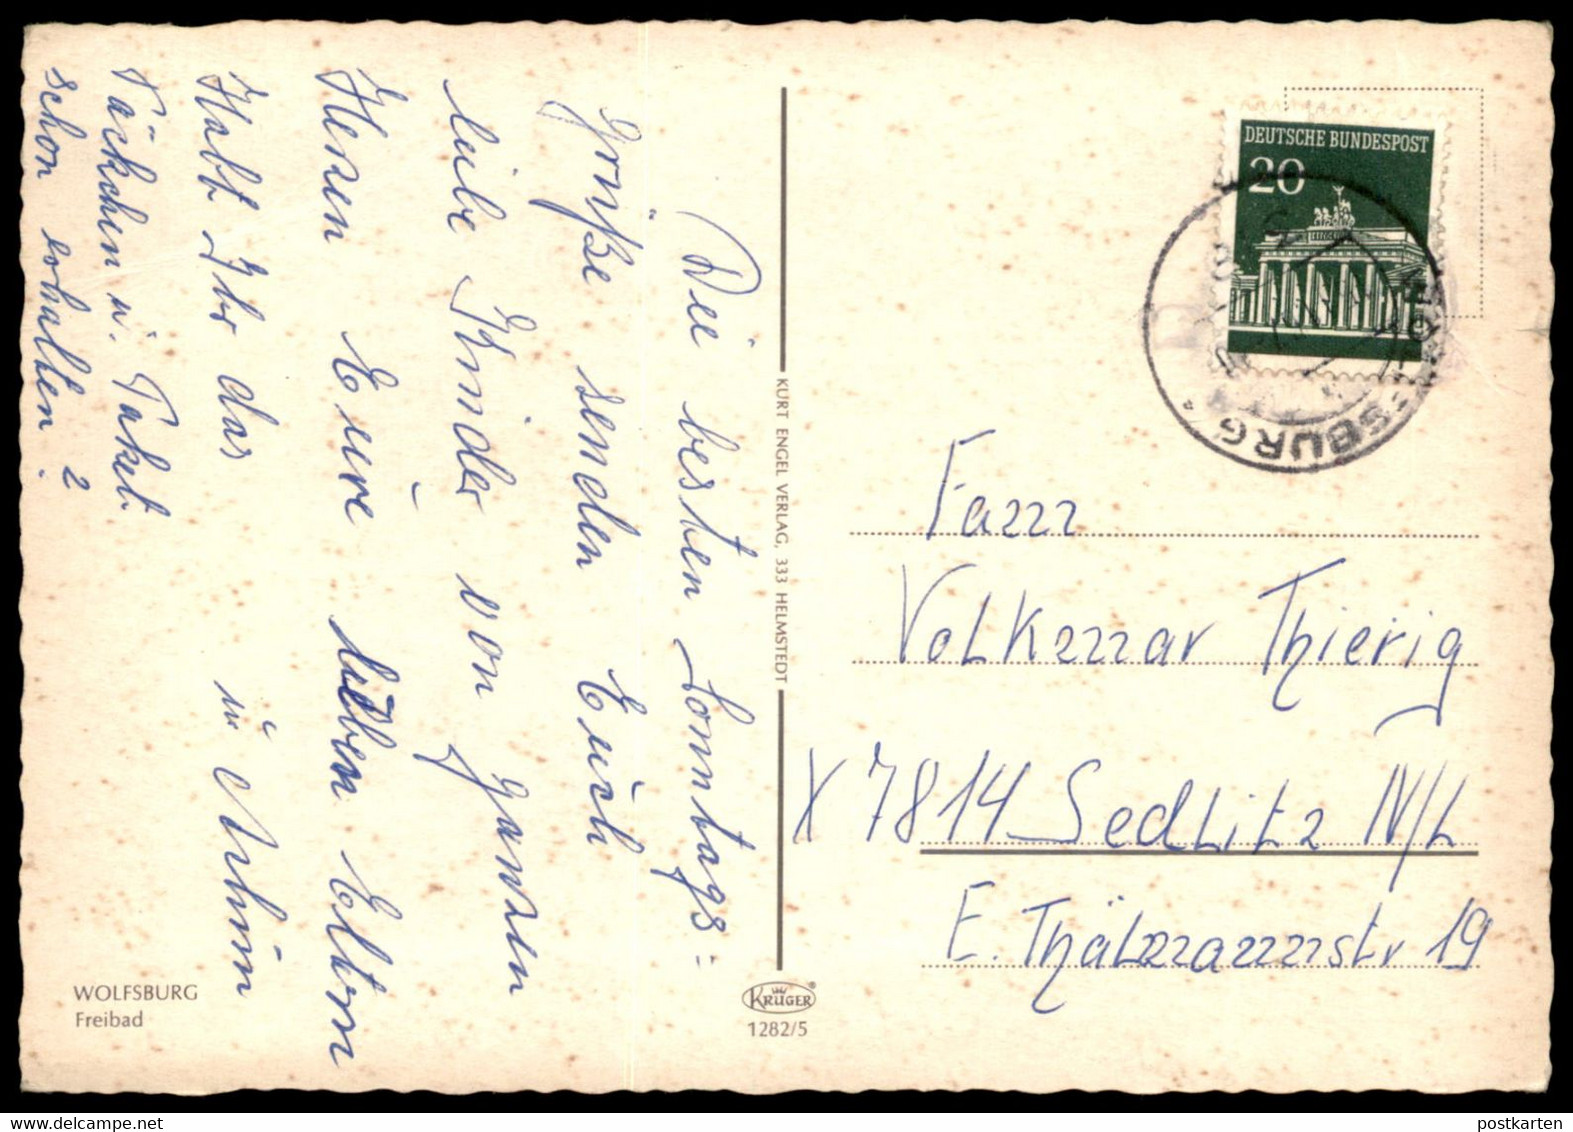 Die besten Sonntags=
Grüße senden Euch
liebe Kinder von ganzen
Herzen Eure lieben Eltern
Habt Ihr das u
Päckchen u. Paket
schon erhalten?
WOLFSBURG
Freibad
KURT ENGEL VERLAG, 333 HELMSTEDT
KRÜGER
1282/5
DEUTSCHE BUNDESPOST
20
Volkmar Thierig
X 7814 Sedlitz N/L
E. Thälmannstr 19
postkarten